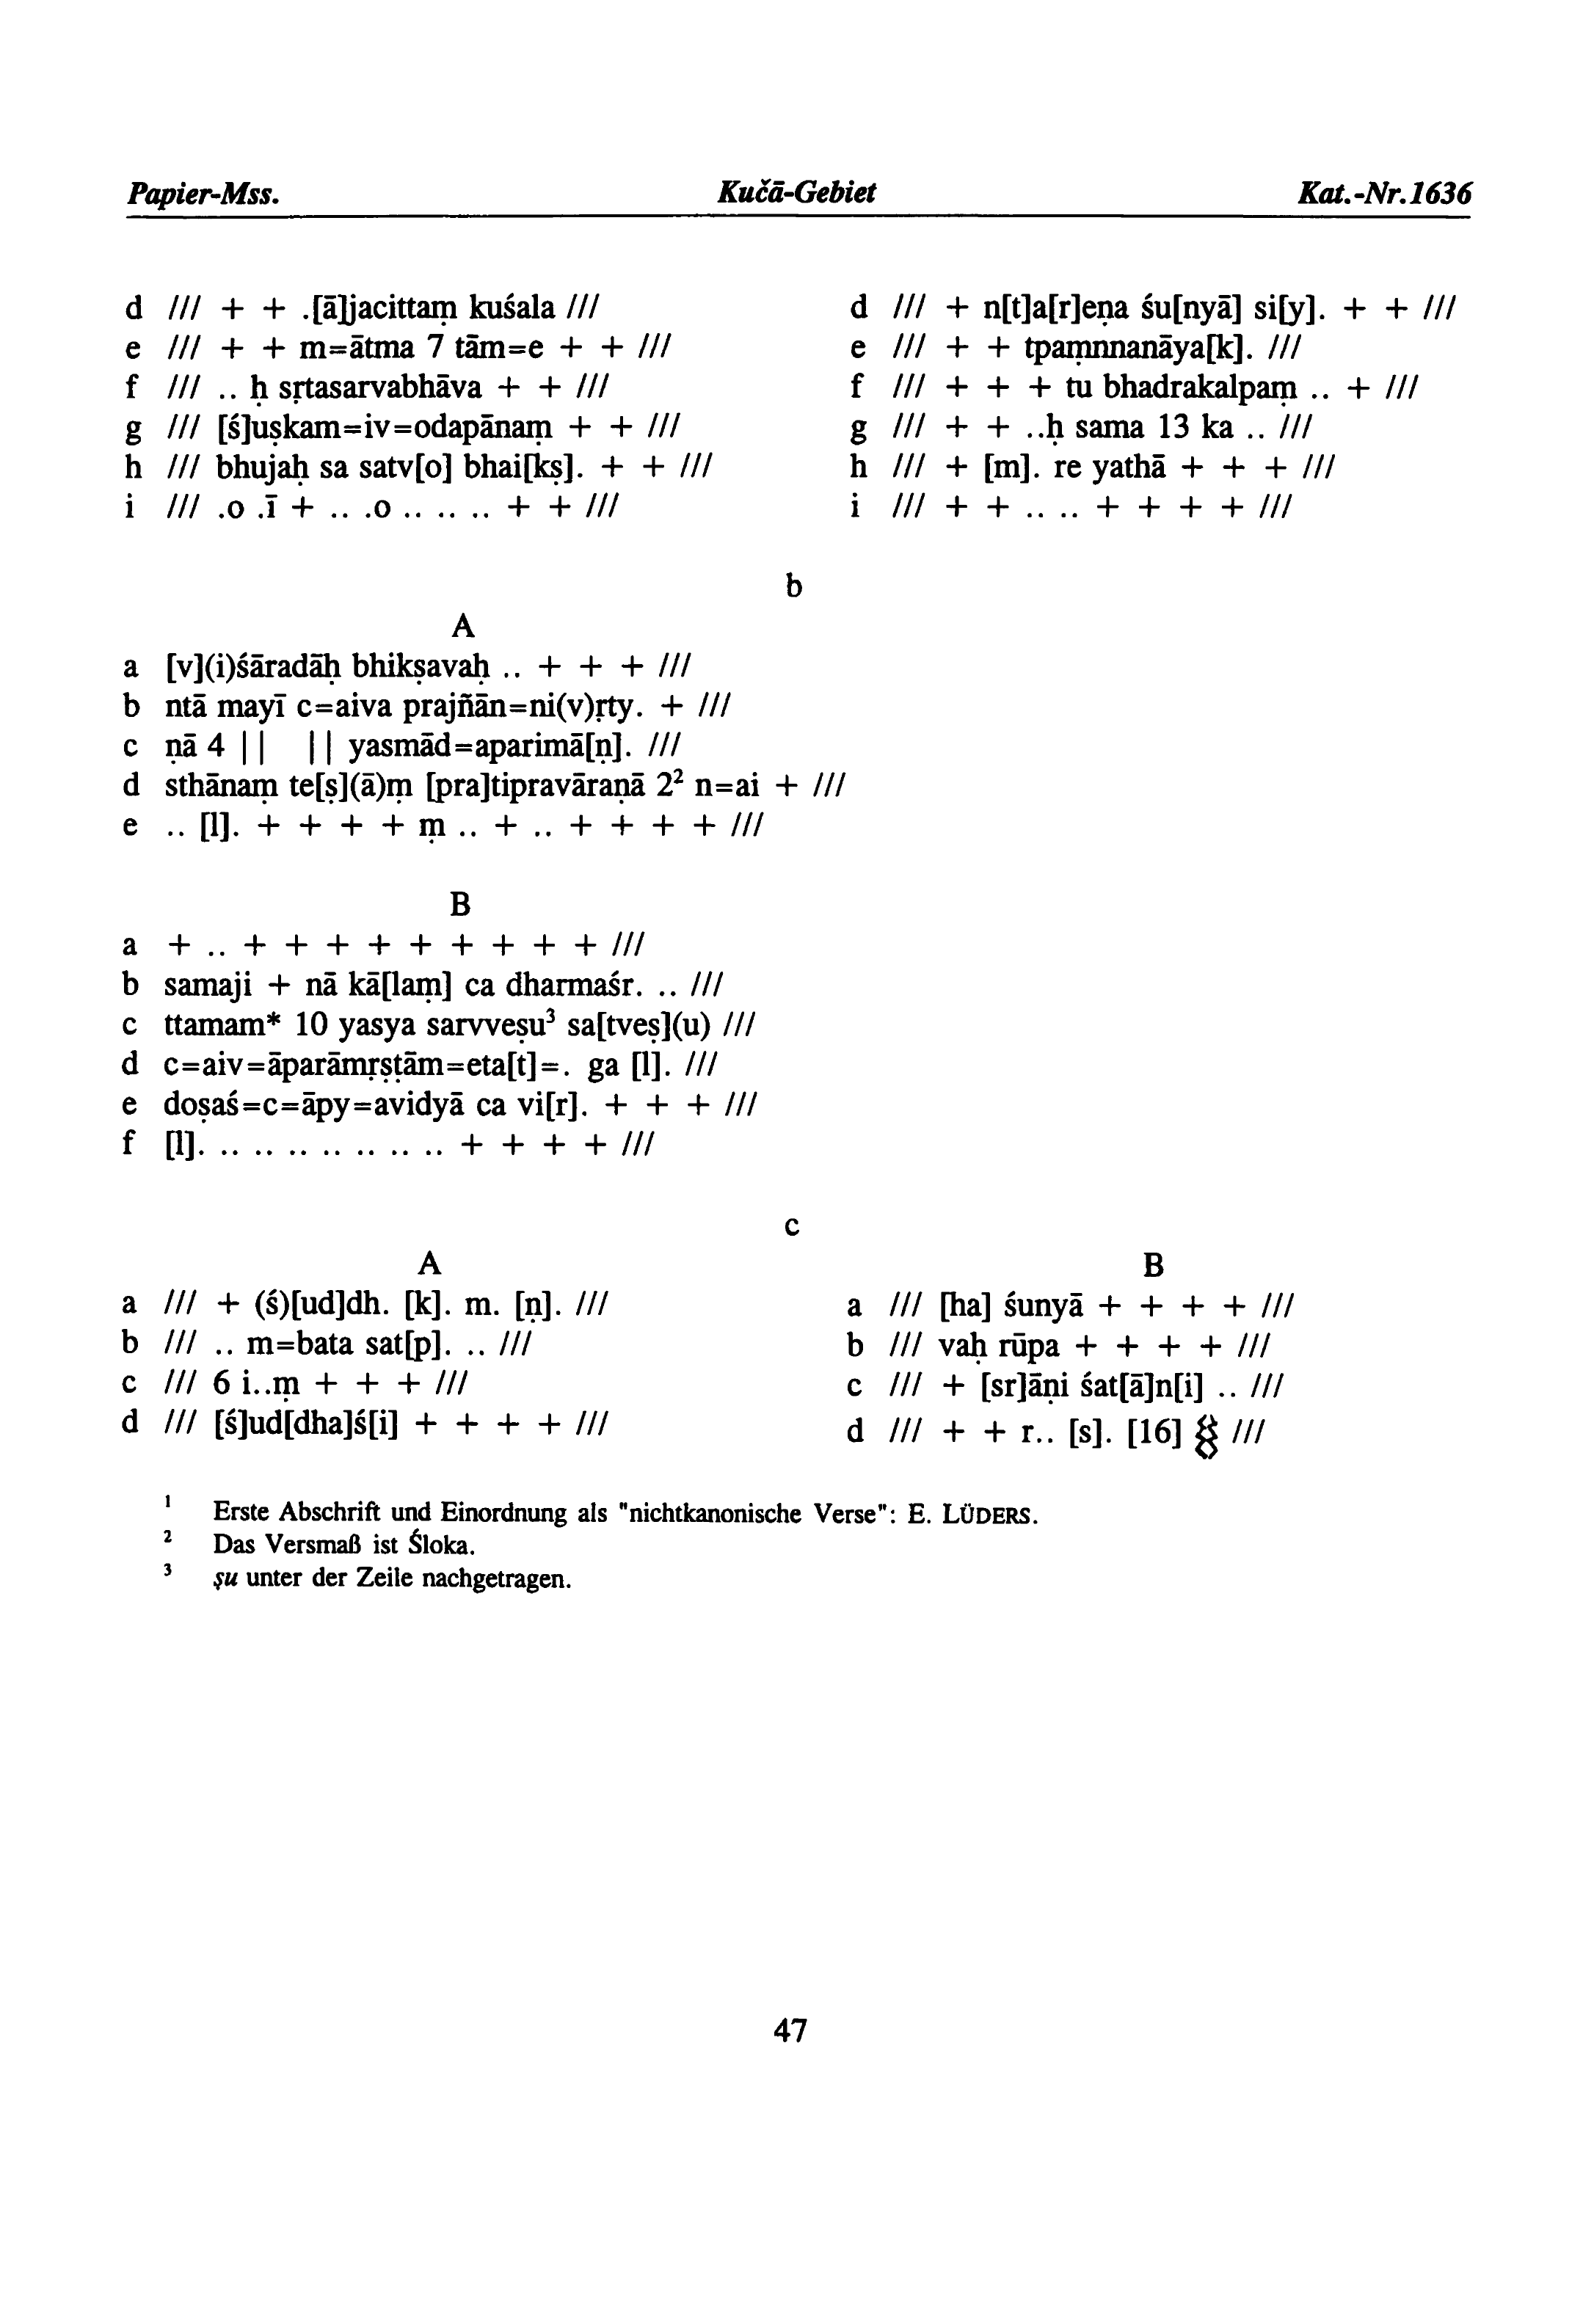 Papier-Mss. Kučā-Gebiet Kat.-Nr.1636
d /// + + .[ā]jacittaṃ kuśala ///
e /// + + m=ātma 7 tām=e + + ///
f /// .. ḥ sṛtasarvabhāva + + ///
g /// [ś]uṣkam=iv=odapānaṃ + + ///
h /// bhujaḥ sa satv[o] bhai[kṣ]. + + ///
i /// .o .ī + .. .o .. .. .. + + ///
d /// + n[t]a[r]eṇa śu[nyā] si[y]. + + ///
e /// + + tpaṃnnanāya[k]. ///
f /// + + + tu bhadrakalpaṃ .. + ///
g /// + + ..ḥ sama 13 ka .. ///
h /// + [m]. re yathā + + + ///
i /// + + .. .. + + + + ///
b
A
a [v](i)śāradāḥ bhikṣavaḥ .. + + + ///
b ntā mayī c=aiva prajñān=ni(v)ṛty. + ///
c ṇā 4 || || yasmād=aparimā[ṇ]. ///
d sthānaṃ te[ṣ](ā)ṃ [pra]tipravāraṇā 2² n=ai + ///
e .. [l]. + + + + ṃ .. + .. + + + + ///
B
a + .. + + + + + + + + + ///
b samaji + nā kā[laṃ] ca dharmaśr. .. ///
c ttamam* 10 yasya sarvveṣu³ sa[tveṣ](u) ///
d c=aiv=āparāmṛṣṭām=eta[t]=. ga [l]. ///
e doṣaś=c=āpy=avidyā ca vi[r]. + + + ///
f [l]. .. .. .. .. .. .. .. + + + + ///
c
A
a /// + (ś)[ud]dh. [k]. m. [ṇ]. ///
b /// .. m=bata sat[p]. .. ///
c /// 6 i..ṃ + + + ///
d /// [ś]ud[dha]ś[i] + + + + ///
B
a /// [ha] śunyā + + + + ///
b /// vaḥ rūpa + + + + ///
c /// + [sr]āṇi śat[ā]n[i] .. ///
d /// + + r.. [s]. [16] ///
1 Erste Abschrift und Einordnung als "nichtkanonische Verse": E. LÜDERS.
2 Das Versmaß ist Śloka.
3 ṣu unter der Zeile nachgetragen.
47